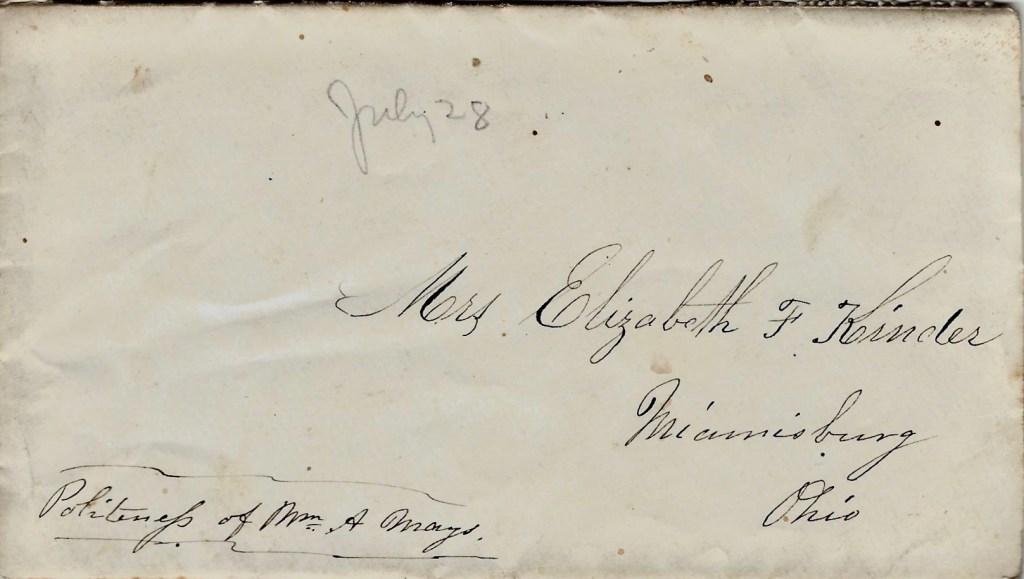 July 28
Mrs Elizabeth F Kinder
Miamisburg
Ohio
Politeness of Wm A Mays.